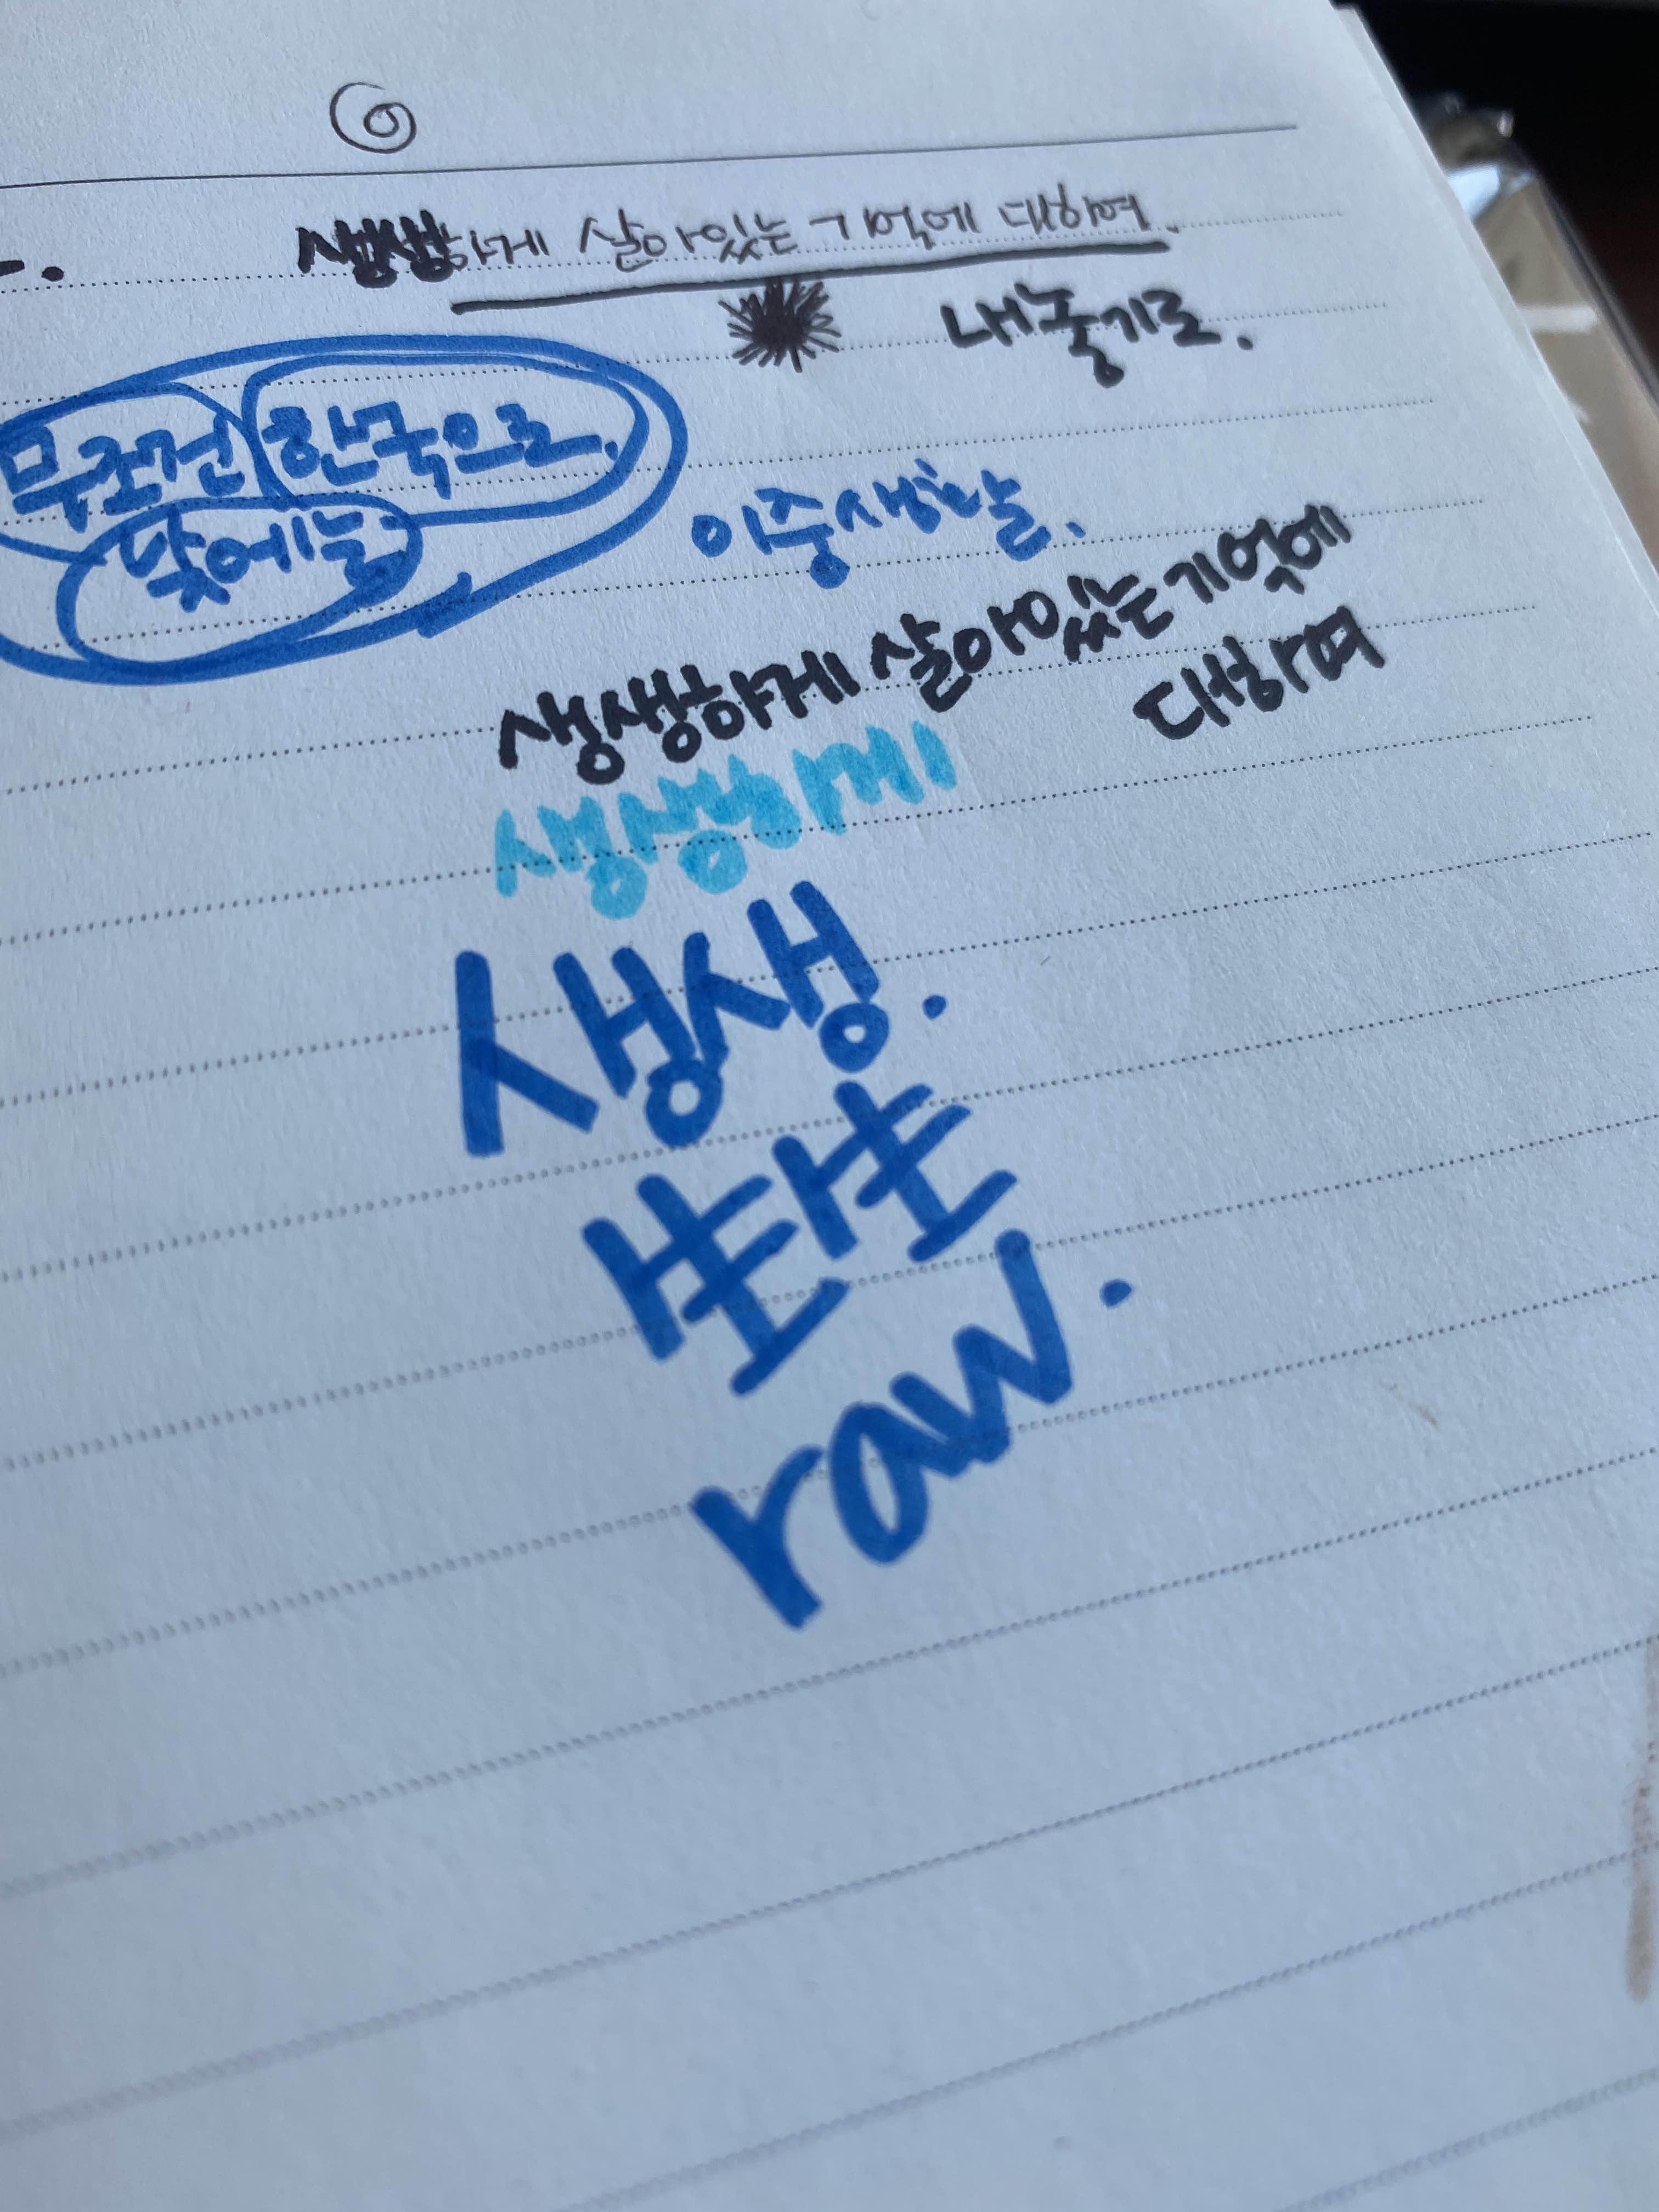 생생하게 살아있는 기억에 대하여.
내놓기로.
무조건 한국으로.
낮에는
이중생활.
생생하게 살아있는 기억에
대하여
생생하게
생생.
生生
raw.